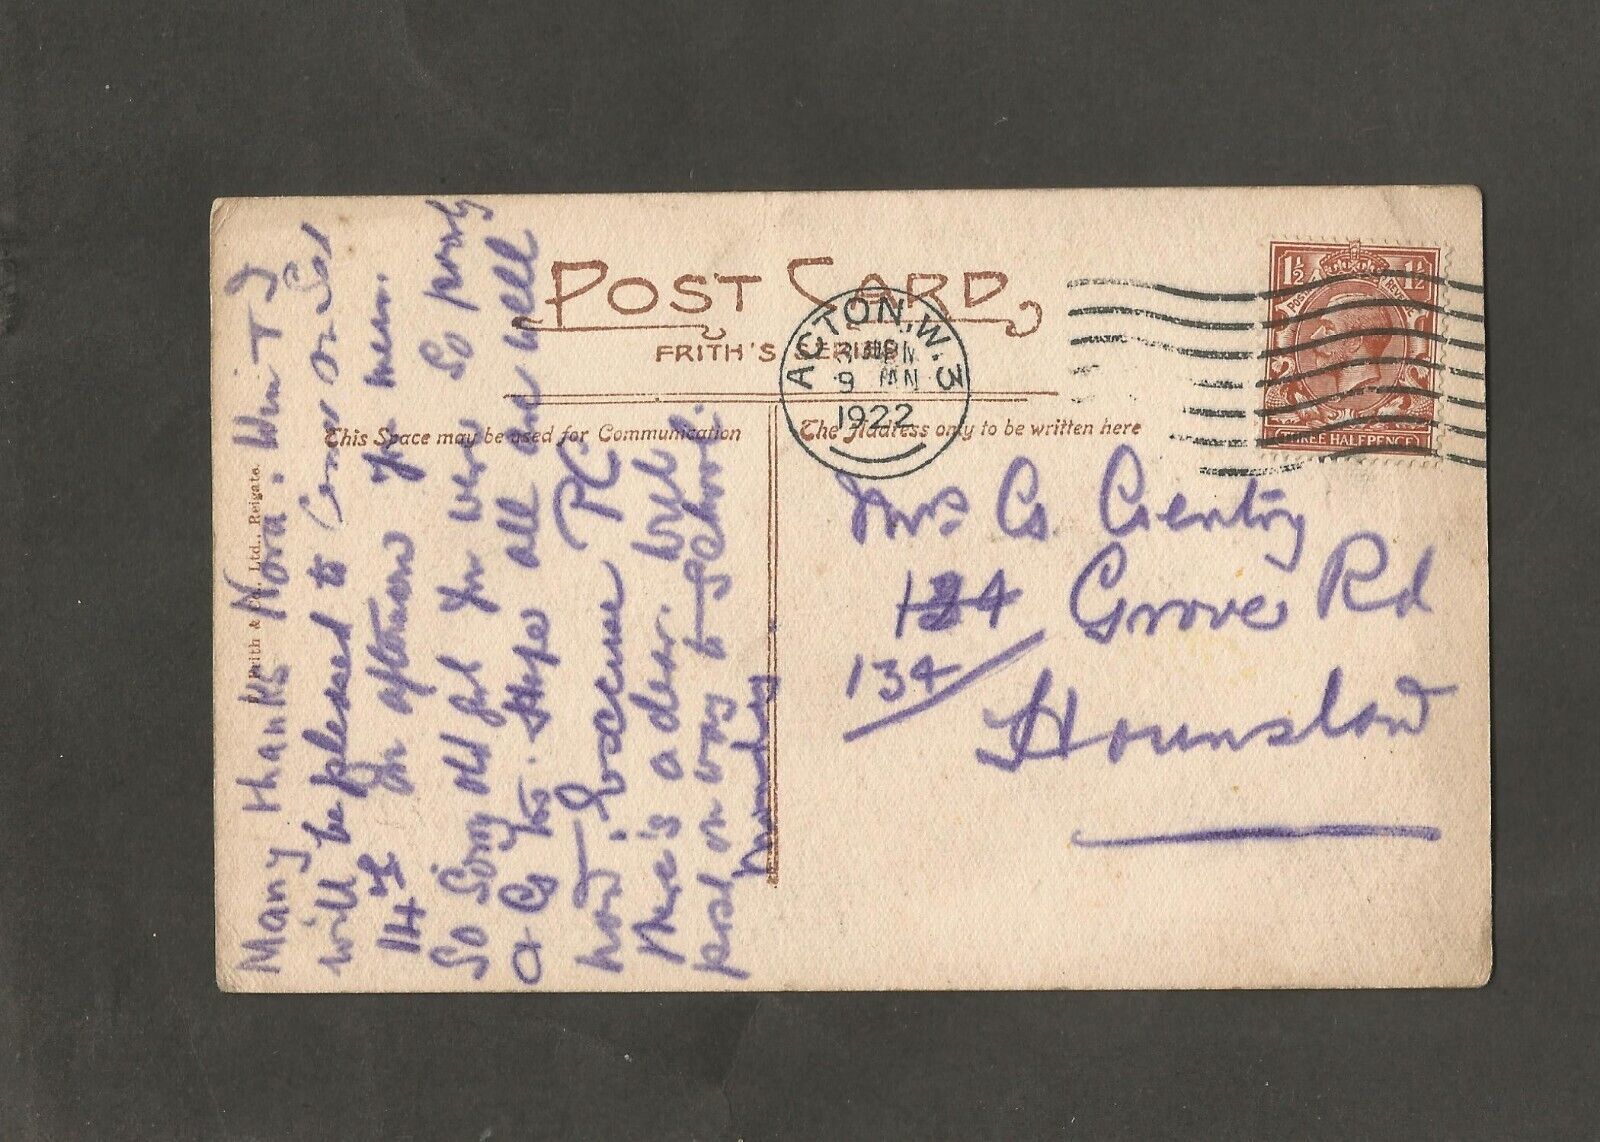 POST CARD
FRITH'S SERIES
This Space may be used for Communication
The Address only to be written here
Frith & Co., Ltd., Reigate.
ACTON, W.3
9
1922
1½ 1½
POSTAGE REVENUE
THREE HALFPENCE
Many thanks Nora. Win & I
will be pleased to Come on Sat
14th in afternoon you mean.
So Sorry old girl you were So poorly
& G to. Hope all are well
now, excuse PC
there's a dear. Will
post on way to School.
Monday
Mrs G Gentry
124 Grove Rd
134
Hounslow